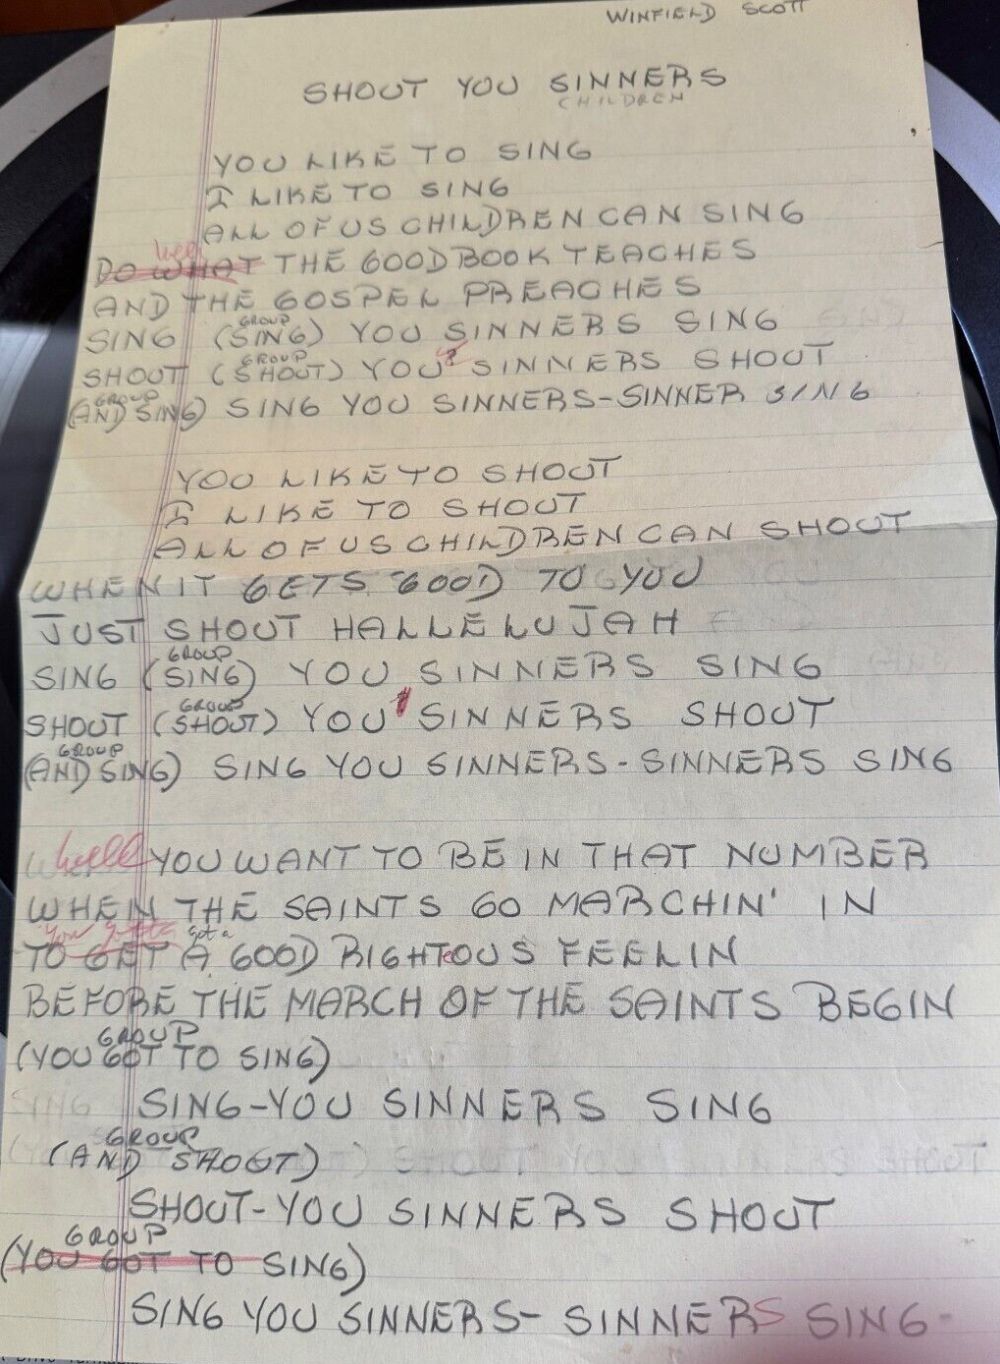 WINFIELD SCOTT
SHOUT YOU SINNERS
CHILDREN
YOU LIKE TO SING
I LIKE TO SING
ALL OF US CHILDREN CAN SING
DO WHAT THE GOOD BOOK TEACHES
AND THE GOSPEL PREACHES
GROUP
SING (SING) YOU SINNERS SING
GROUP
SHOUT (SHOUT) YOU SINNERS SHOUT
GROUP
(AND SING) SING YOU SINNERS-SINNER SING
YOU LIKE TO SHOUT
I LIKE TO SHOUT
ALL OF US CHILDREN CAN SHOUT
WHEN IT GETS GOOD TO YOU
JUST SHOUT HALLELUJAH
GROUP
SING (SING) YOU SINNERS SING
GROUP
SHOUT (SHOUT) YOU SINNERS SHOUT
GROUP
(AND SING) SING YOU SINNERS-SINNERS SING
Well YOU WANT TO BE IN THAT NUMBER
WHEN THE SAINTS GO MARCHIN' IN
You gotta got a
TO GET A GOOD RIGHTeOUS FEELIN
BEFORE THE MARCH OF THE SAINTS BEGIN
GROUP
(YOU GOT TO SING)
SING-YOU SINNERS SING
GROUP
(AND SHOUT)
SHOUT-YOU SINNERS SHOUT
GROUP
(YOU GOT TO SING)
SING YOU SINNERS- SINNERS SING-